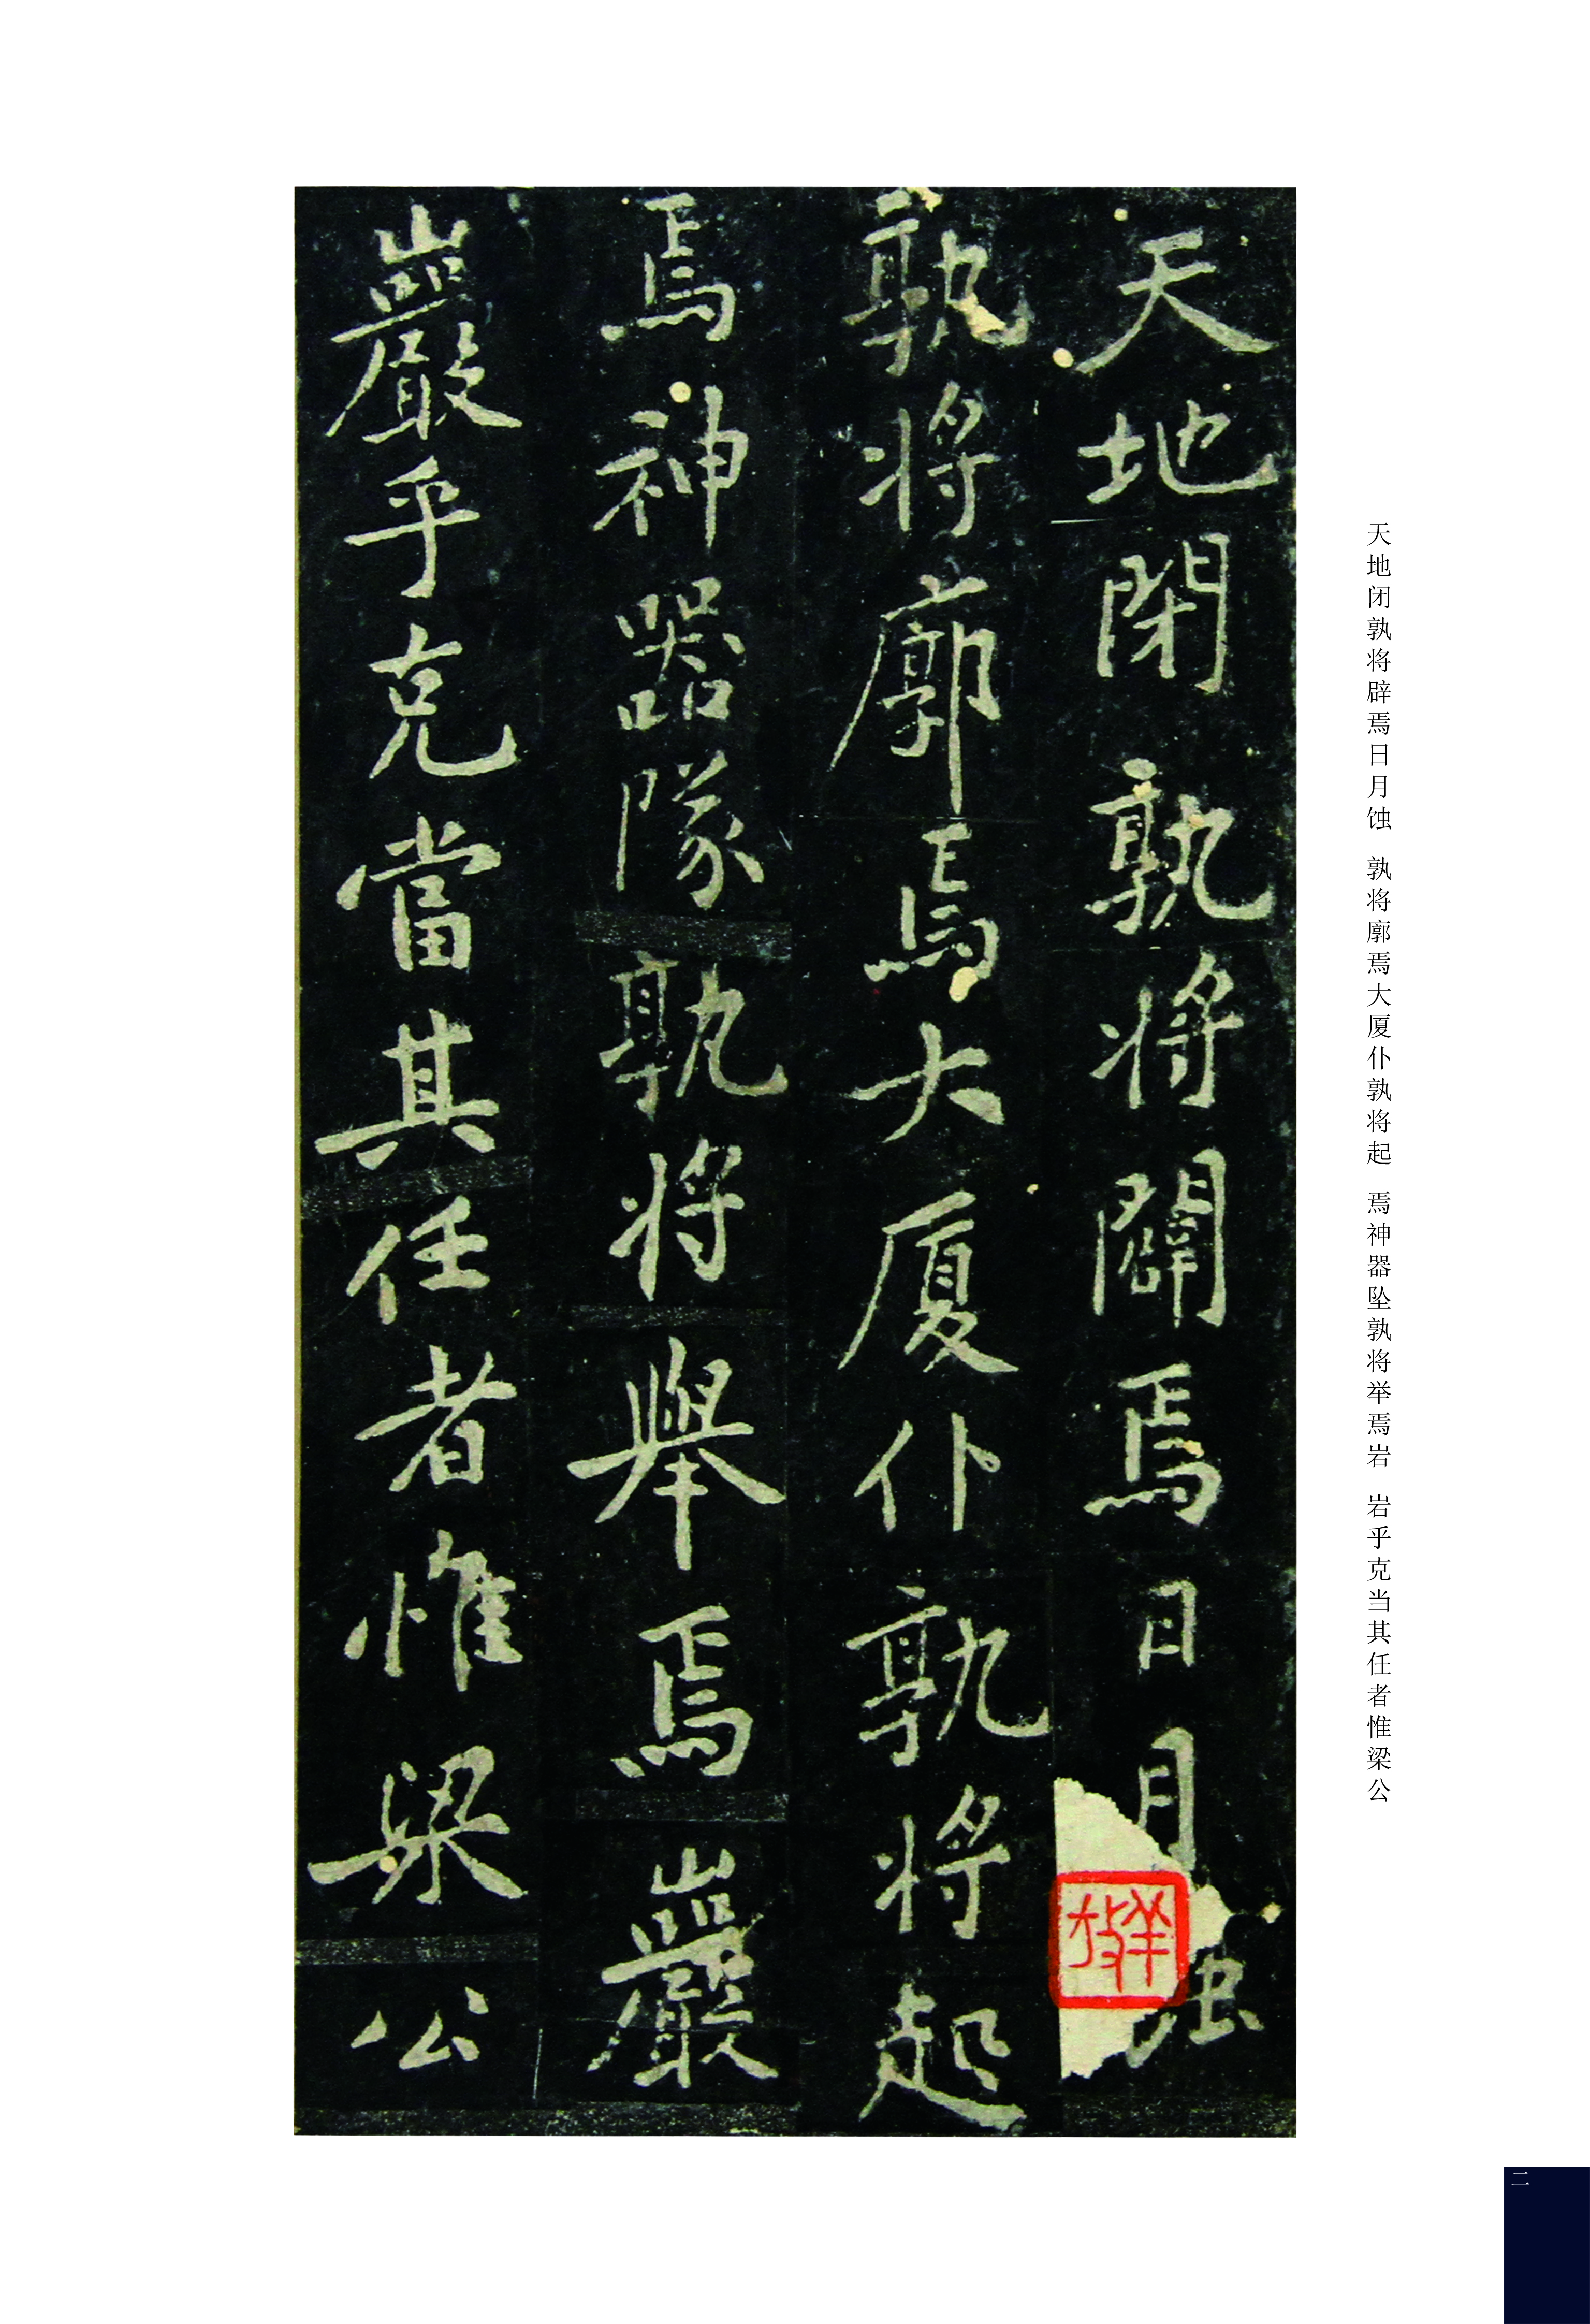 天地閉孰將闢焉日月蝕
孰將廓焉大厦仆孰將起
焉神器隊孰將舉焉巖
巖乎克當其任者惟梁公
天地闭孰将辟焉日月蚀 孰将廓焉大厦仆孰将起 焉神器坠孰将举焉岩 岩乎克当其任者惟梁公
二